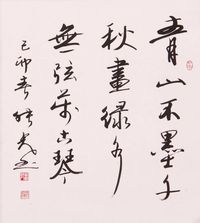 青山不墨千
秋畫綠水
無弦萬古琴
己卯春